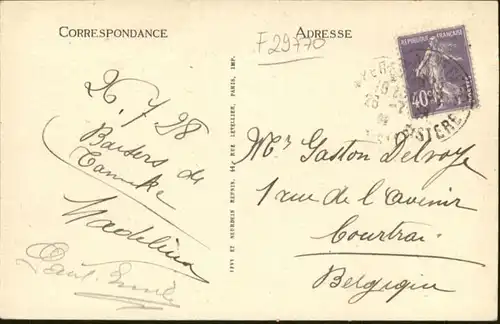 CORRESPONDANCE
ADRESSE
F29770
RÉPUBLIQUE FRANÇAISE
40c
FINISTERE
26/7/28
Baisers de
Madeleine
LÉVY ET NEURDEIN RÉUNIS, 44, RUE LETELLIER, PARIS, IMP.
Mr Gaston Delvoye
1 rue de l'avenir
Courtrai
Belgique